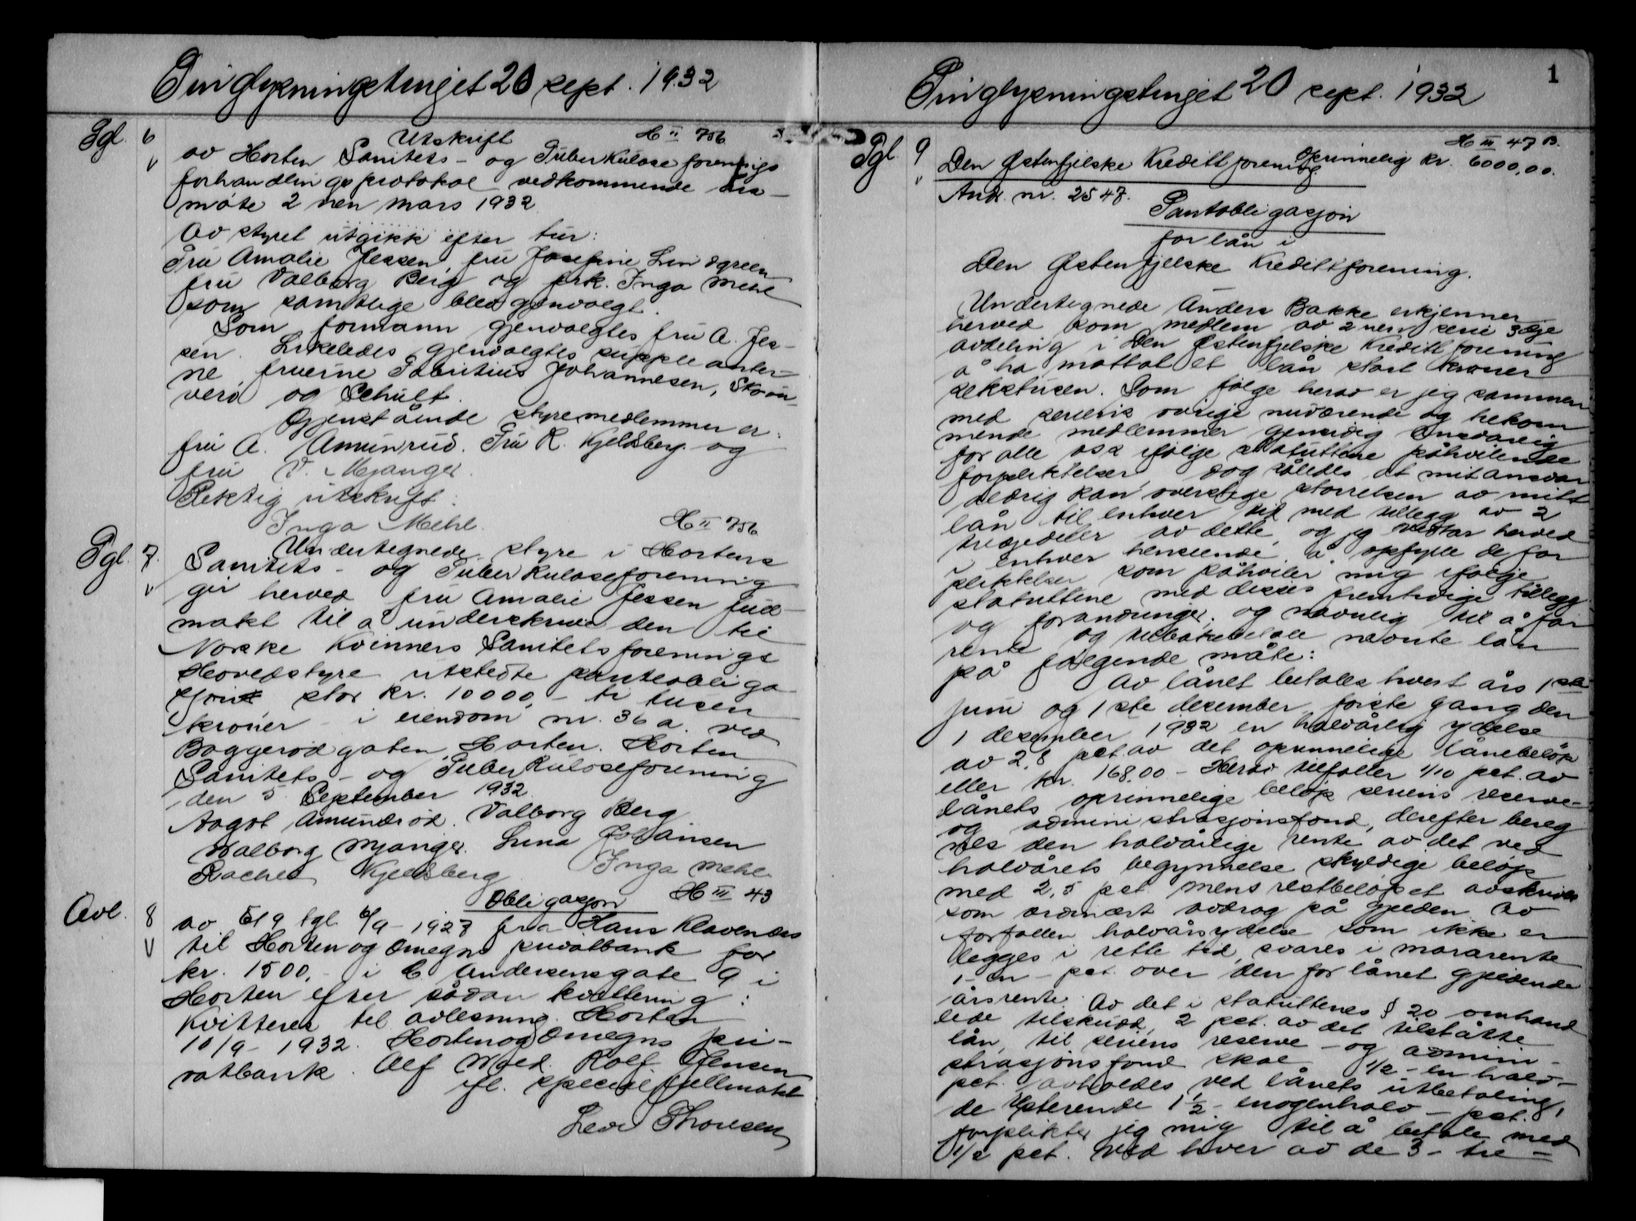 Tinglysningstinget 20 sept. 1932
Tgl. 6
Utskrift H II 756
av Horten Sanitets- og Tuberkuloseforenings
forhandlingsprotokol vedkommende års-
möte 2 nen mars 1932
Av styret utgikk efter tur:
Fru Amalie Jessen fru Josefine Lindgreen
fru Valborg Berg og frk. Inga Mehl
som samtlige blev gjenvalgt.
Som formann gjenvalgtes fru A. Jes-
sen. Likeledes gjenvalgtes supple anter-
ne, fruerne Fabritius Johannesen,
verd og Schult.
Gjenstående styremedlemmer er:
fru A. Amunrud. Fru R. Kjeldsberg og
fru V. Mjanger.
Rektig utskrift:
Inga Mehl. H II 756
Tgl. 7.
Undertegnede styre i Hortens
Sanitets- og Tuberkuloseforening
gir herved fru Amalie Jessen full-
makt til å underskrive den til
Norske Kvinners Sanitetsforenings
Hovedstyre utstedte panteobliga
sjon stor kr. 10000,- ti tusen
kroner i eiendom nr. 36 a ved
Baggerødgaten, Horten. Horten
Sanitets- og Tuberkuloseforening
den 5 September 1932.
Aagot Amundrød. Valborg Berg
Walborg Mjanger. Luna Johansen
Rachel Kjeldsberg Inga Mehl
Avl. 8
Obligasjon H III 43
av 5/9 tgl. 6/9-1927 fra Hans Klavenæs
til Horten og Omegns privatbank for
kr. 1500,- i C Andersensgate 9 i
Horten efter sådan kvittering:
Kvitteres til avlesning. Horten
10/9-1932. Horten og Omegns pri-
vatbank. Alf Rolf Jensen
ifl. speciel fullmakt
Thoresen
1
Tinglysningstinget 20 sept. 1932
Tgl 9
H III 47 B.
Den Østenfjelske Kredittforening Oprinnelig kr. 6000,00.
Andr. nr. 2547.
Pantobligasjon
for lån i
Den Østenfjelske Kredittforening.
Undertegnede Anders Bakke erkjenner
herved som medlem av 2nen serie 3dje
avdeling i Den Østenfjelske Kreditt forening
å ha mottat et lån stort kroner
sekstusen. Som følge herav er jeg sammen
med seriens øvrige nuværende og tilkom
mende medlemmer gjensidig ansvarlig
for alle oss ifølge statuttene påhvilende
forpliktelser dog således at mit ansvar
aldrig kan overstige størrelsen av mitt
lån til enhver tid med tillegg av 2
tredjedeler av dette, og jeg vedtar herved
i enhver henseende å opfylle de for
pliktelser som påhviler mig ifølge
statuttene med disses fremtidige tillegg
og forandringer og navnlig til å for
rente og tilbakebetale nævnte lån
på følgende måte:
Av lånet betales hvert års 1ste
juni og 1ste desember, første gang den
1 desember 1932 en halvårlig ydelse
av 2,8 pct av det oprinnelige lånebeløp
eller kr. 168.00 - Herav tilfaller 1/10 pct. av
lånets oprinnelige beløp seriens reserve-
og administrasjonsfond, derefter bereg
nes den halvårlige rente av det ved
halvårets begynnelse skyldige beløp
med 2,5 pct mens restbeløpet avskrives
som ordinært avdrag på gjelden. Av
forfallen halvårsydelse som ikke er
lægges i rette tid, svares i morarente
1 - en - pct. over den for lånet gjeldende
årsrente. Av det i statuttenes § 20 omhand
lede tilskudd, 2 pct. av det tilståtte
lån, til seriens reserve- og admini-
strasjonsfond skal 1/2 - en halv -
pct. avholdes ved lånets utbetaling,
de resterende 1 1/2 - enogenhalv - pct.
forplikter jeg mig til å betale med
1/2 pct. ved hver av de 3 - tre -